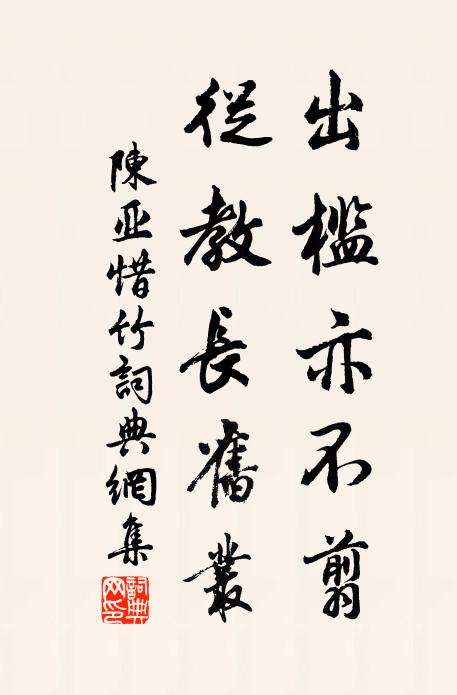 出檻亦不翦
從教長舊叢
陳亚惜竹詞典網集
詞典网印